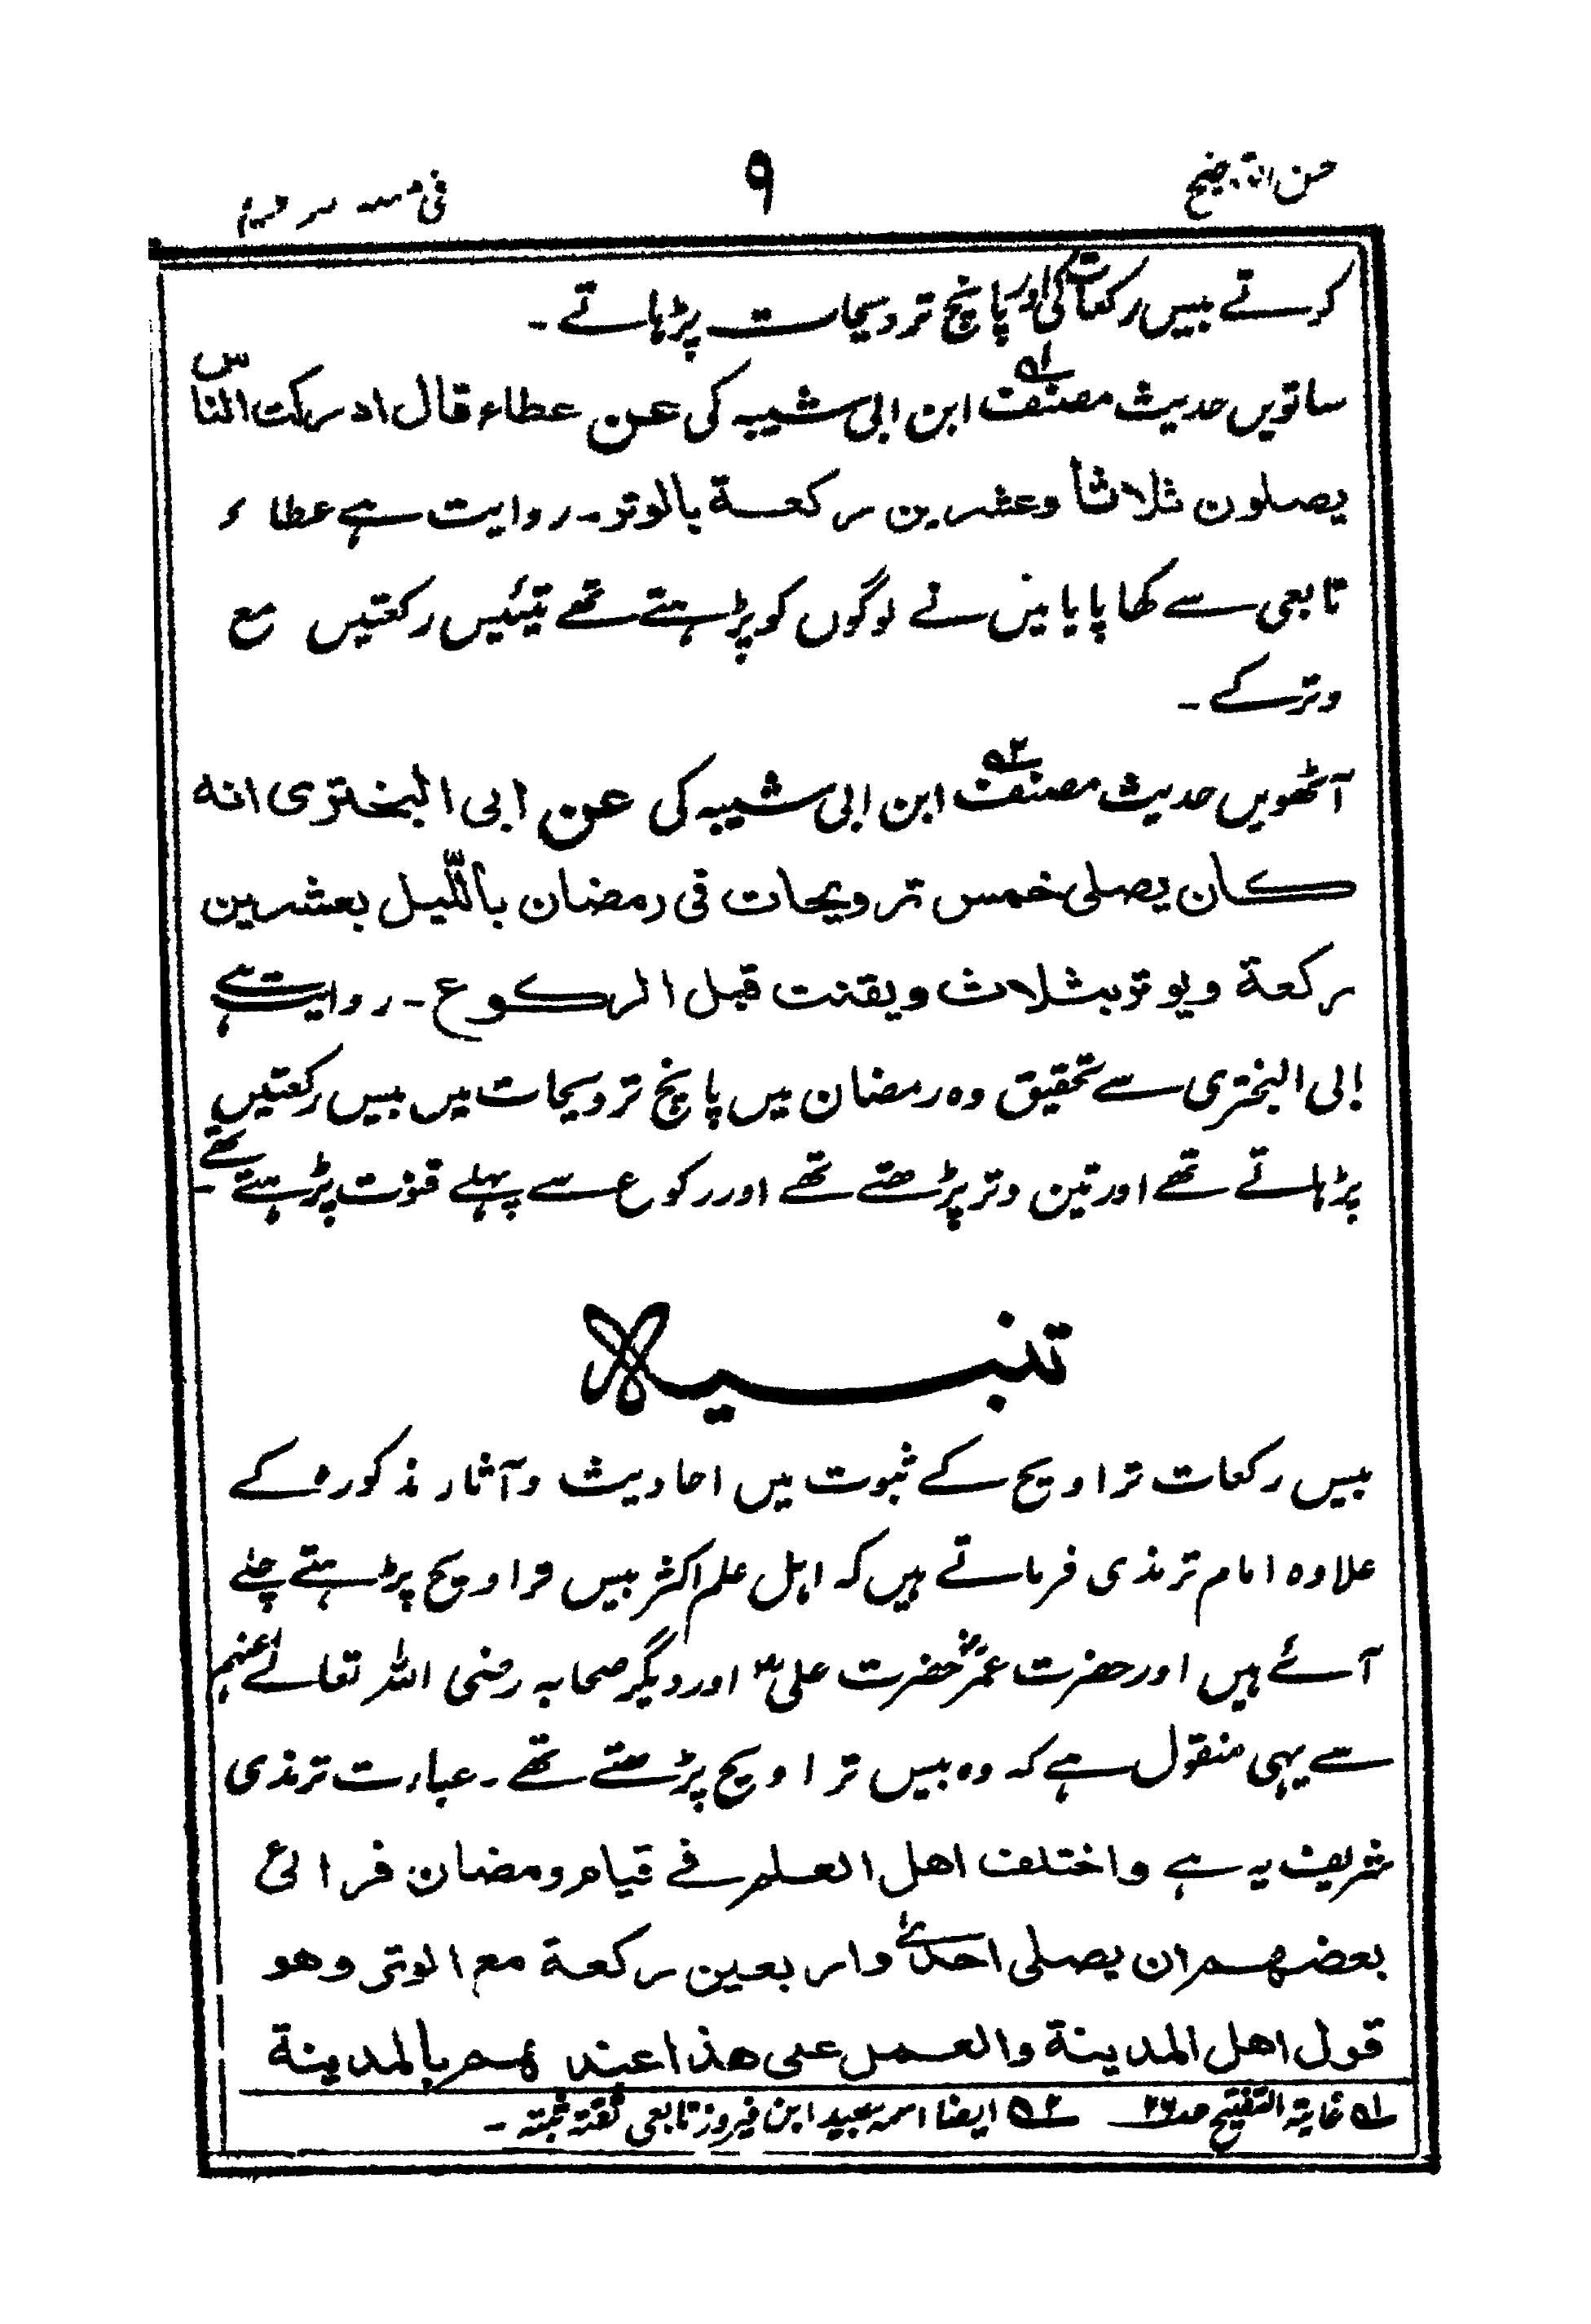 ۹
کرتے بیس رکعات کی اور پانچ ترویحات پڑہاتے ۔
ساتویں حدیث مصنف۱ ابن ابی شیبہ کی عن عطاء قال ادرکت الناس
یصلون ثلاثا وعشرین رکعۃ بالوتر ۔ روایت ہے عطاء
تابعی سے کہا پایا میں نے لوگوں کو پڑہتے تھے تیئیس رکعتیں مع
وترکے ۔
آٹھویں حدیث مصنف۲ ابن ابی شیبہ کی عن ابی البختری انہ
کان یصلی خمس ترویحات فی رمضان باللیل بعشرین
رکعۃ ویوتر بثلاث ویقنت قبل الرکوع ۔ روایت ہے
ابی البختری سے تحقیق وہ رمضان میں پانچ ترویحات میں بیس رکعتیں
پڑہاتے تھے اور تین وتر پڑھتے تھے اور رکوع سے پہلے قنوت پڑہتے تھے ۔
تنبیہ
بیس رکعات تراویح کے ثبوت میں احادیث وآثار مذکورہ کے
علاوہ امام ترمذی فرماتے ہیں کہ اہل علم اکثر بیس تراویح پڑہتے چلے
آئے ہیں اور حضرت عمرؓ حضرت علیؓ اور دیگر صحابہ رضی اللہ تعالےٰ عنہم
سے یہی منقول ہے کہ وہ بیس تراویح پڑھتے تھے ۔ عبارت ترمذی
شریف یہ ہے واختلف اھل العلم فے قیام رمضان فرائ
بعضہم ان یصلی احدیٰ واربعین رکعۃ مع الوتر وھو
قول اھل المدینۃ والعمل علی ھذا عندھم بالمدینۃ
۱؎ غایۃ التنقیح صـ۲۶ ۲؎ ایضا اسمہ سعید ابن فیروز تابعی ثقتہ ثبتہ ۔